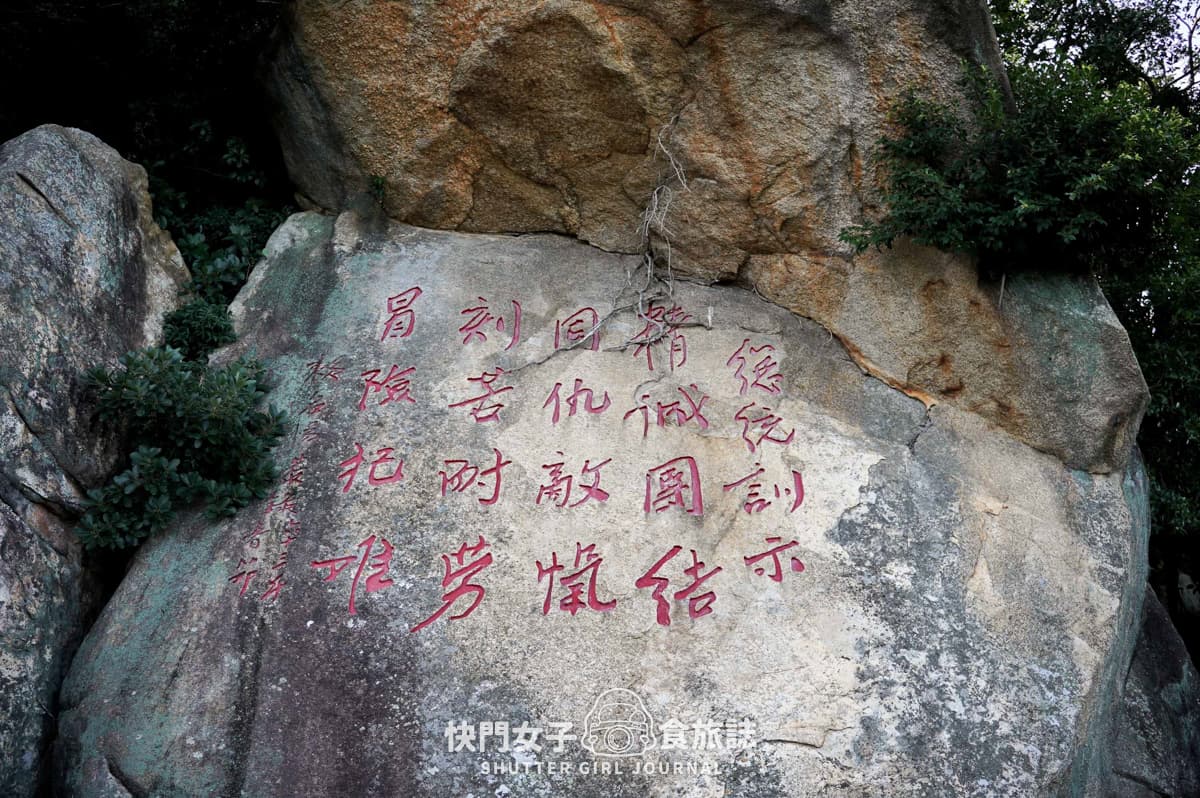 總統訓示
精誠團結
同仇敵愾
刻苦耐勞
冒險犯難
快門女子 食旅誌
SHUTTER GIRL JOURNAL